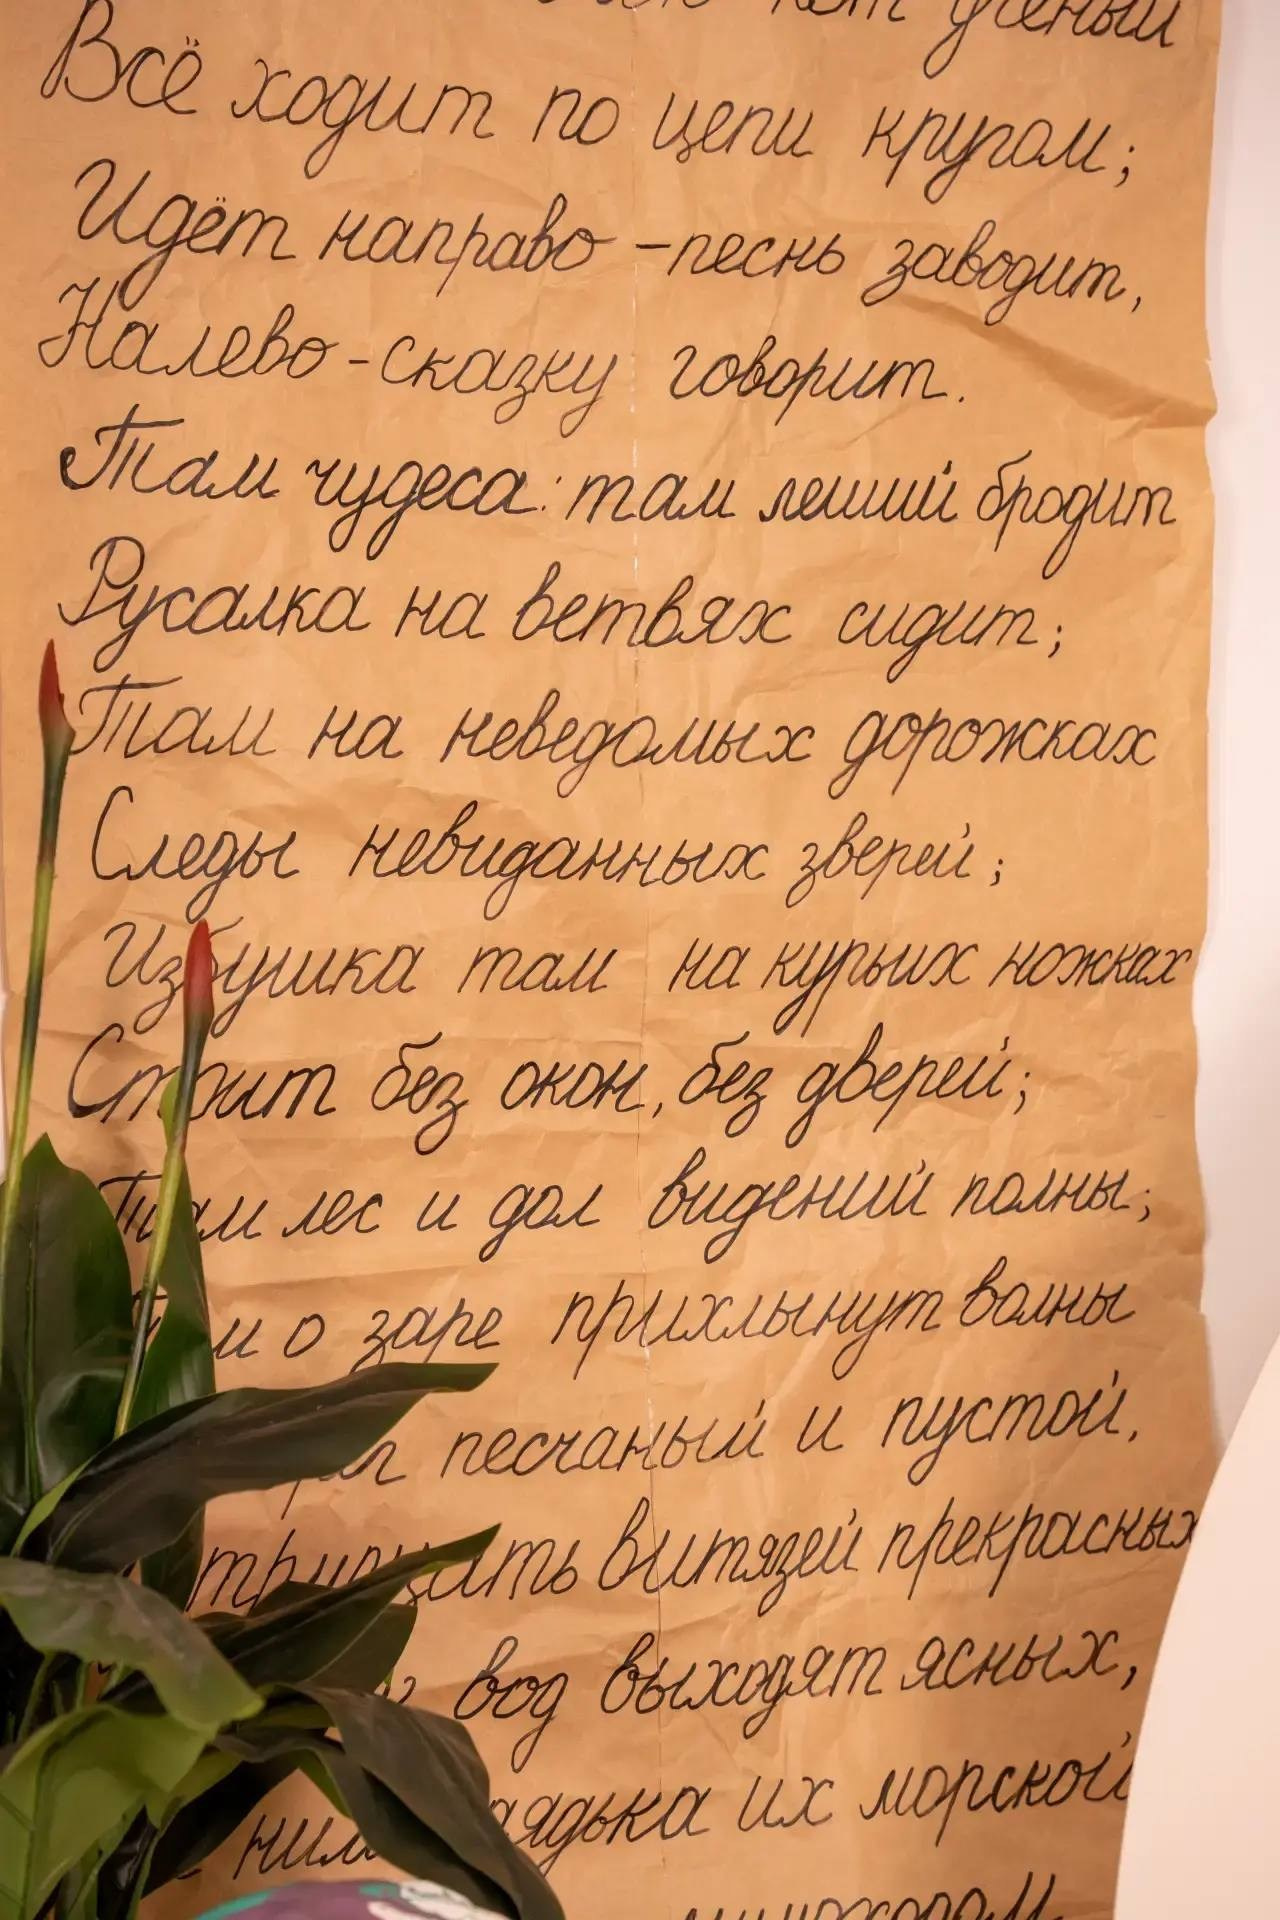 кот учёный
Всё ходит по цепи кругом;
Идёт направо - песнь заводит,
Налево - сказку говорит.
Там чудеса: там леший бродит
Русалка на ветвях сидит;
Там на неведомых дорожках
Следы невиданных зверей;
Избушка там на курьих ножках
Стоит без окон, без дверей;
Там лес и дол видений полны;
и о заре прихлынут волны
песчаный и пустой,
тридцать витязей прекрасных
вод выходят ясных,
ним дядька их морской